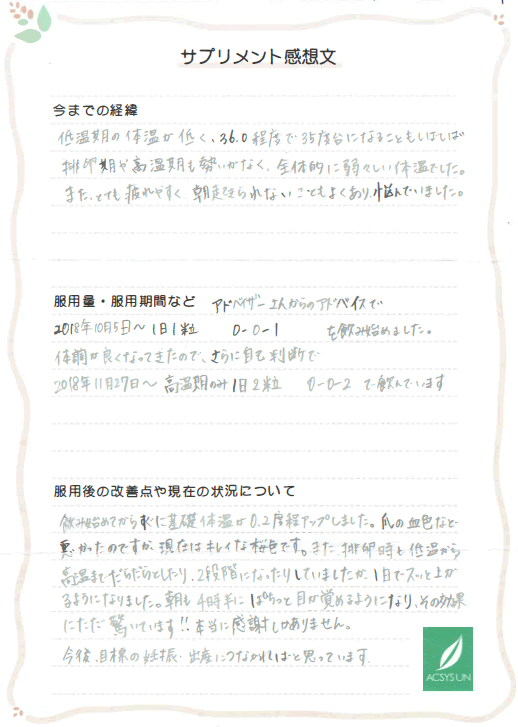 サプリメント感想文
今までの経緯
低温期の体温が低く、36.0程度で35度台になることもしばしば
排卵期や高温期も勢いがなく、全体的に弱々しい体温でした。
また、とても疲れやすく 朝起きられないこともよくあり、悩んでいました。
服用量・服用期間など アドバイザーさんからのアドバイスで
2018年10月5日～ 1日1粒 0-0-1 を飲み始めました。
体調が良くなってきたので、さらに自己判断で
2018年11月27日～ 高温期のみ1日2粒 0-0-2 で飲んでいます
服用後の改善点や現在の状況について
飲み始めてからすぐに基礎体温が0.2度程アップしました。爪の血色など
悪かったのですが、現在はキレイな桜色です。また、排卵時も低温から
高温までだらだらとしたり、2段階になったりしていましたが、1日でスッと上が
るようになりました。朝も4時半にぱちっと目が覚めるようになり、その効果
にただ驚いています!!本当に感謝しかありません。
今後、目標の妊娠・出産につながればと思っています.
ACSYSUN